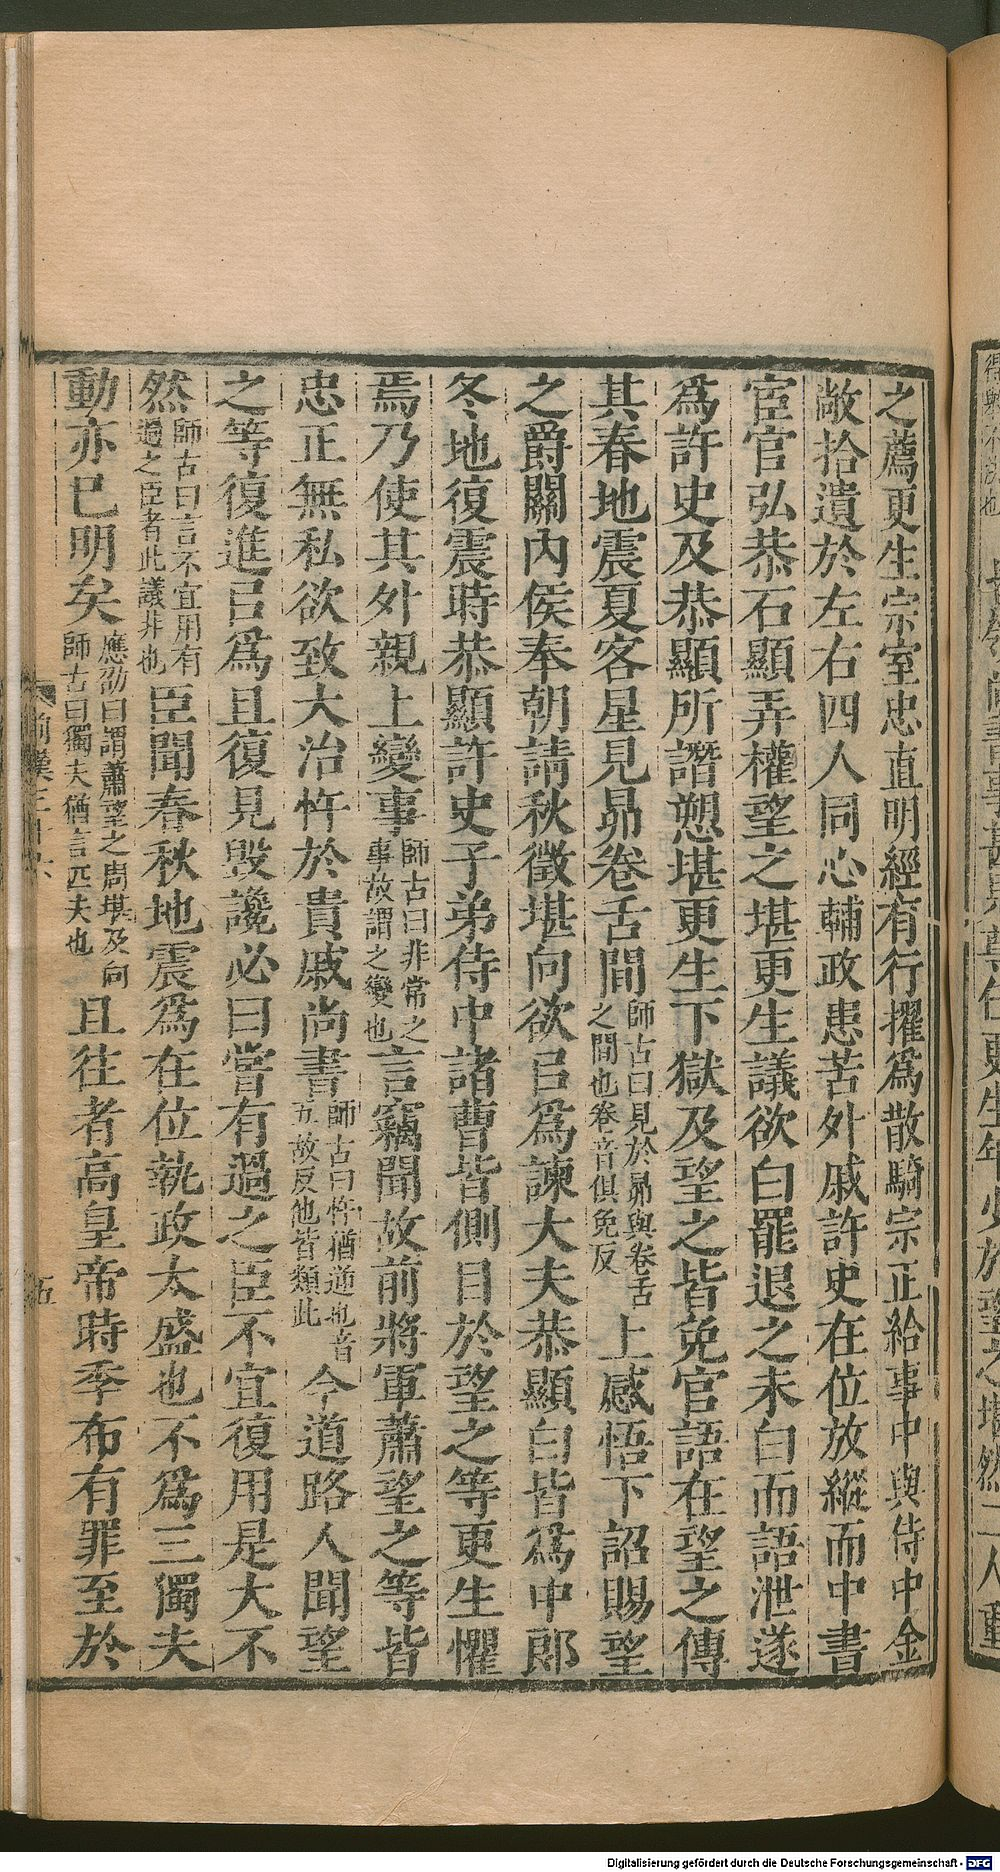 之薦更生宗室忠直明經有行擢爲散騎宗正給事中與侍中金
敞拾遺於左右四人同心輔政患苦外戚許史在位放縱而中書
宦官弘恭石顯弄權望之堪更生議欲白罷退之未白而語泄遂
爲許史及恭顯所譖愬堪更生下獄及望之皆免官語在望之傳
其春地震夏客星見昴卷舌間師古曰見於昴與卷舌之間也卷音俱免反上感悟下詔賜望
之爵關內侯奉朝請秋徵堪向欲㠯爲諫大夫恭顯白皆爲中郎
冬地復震時恭顯許史子弟侍中諸曹皆側目於望之等更生懼
焉乃使其外親上變事師古曰非常之事故謂之變也言竊聞故前將軍蕭望之等皆
忠正無私欲致大治忤於貴戚尚書師古曰忤猶逆也音五故反他皆類此今道路人聞望
之等復進㠯爲且復見毀讒必曰嘗有過之臣不宜復用是大不
然師古曰言不宜用有過之臣者此議非也臣聞春秋地震爲在位執政太盛也不爲三獨夫
動亦已明矣應劭曰謂蕭望之周堪及向師古曰獨夫猶言匹夫也且往者高皇帝時季布有罪至於
前漢三十六
五
Digitalisierung gefördert durch die Deutsche Forschungsgemeinschaft - DFG